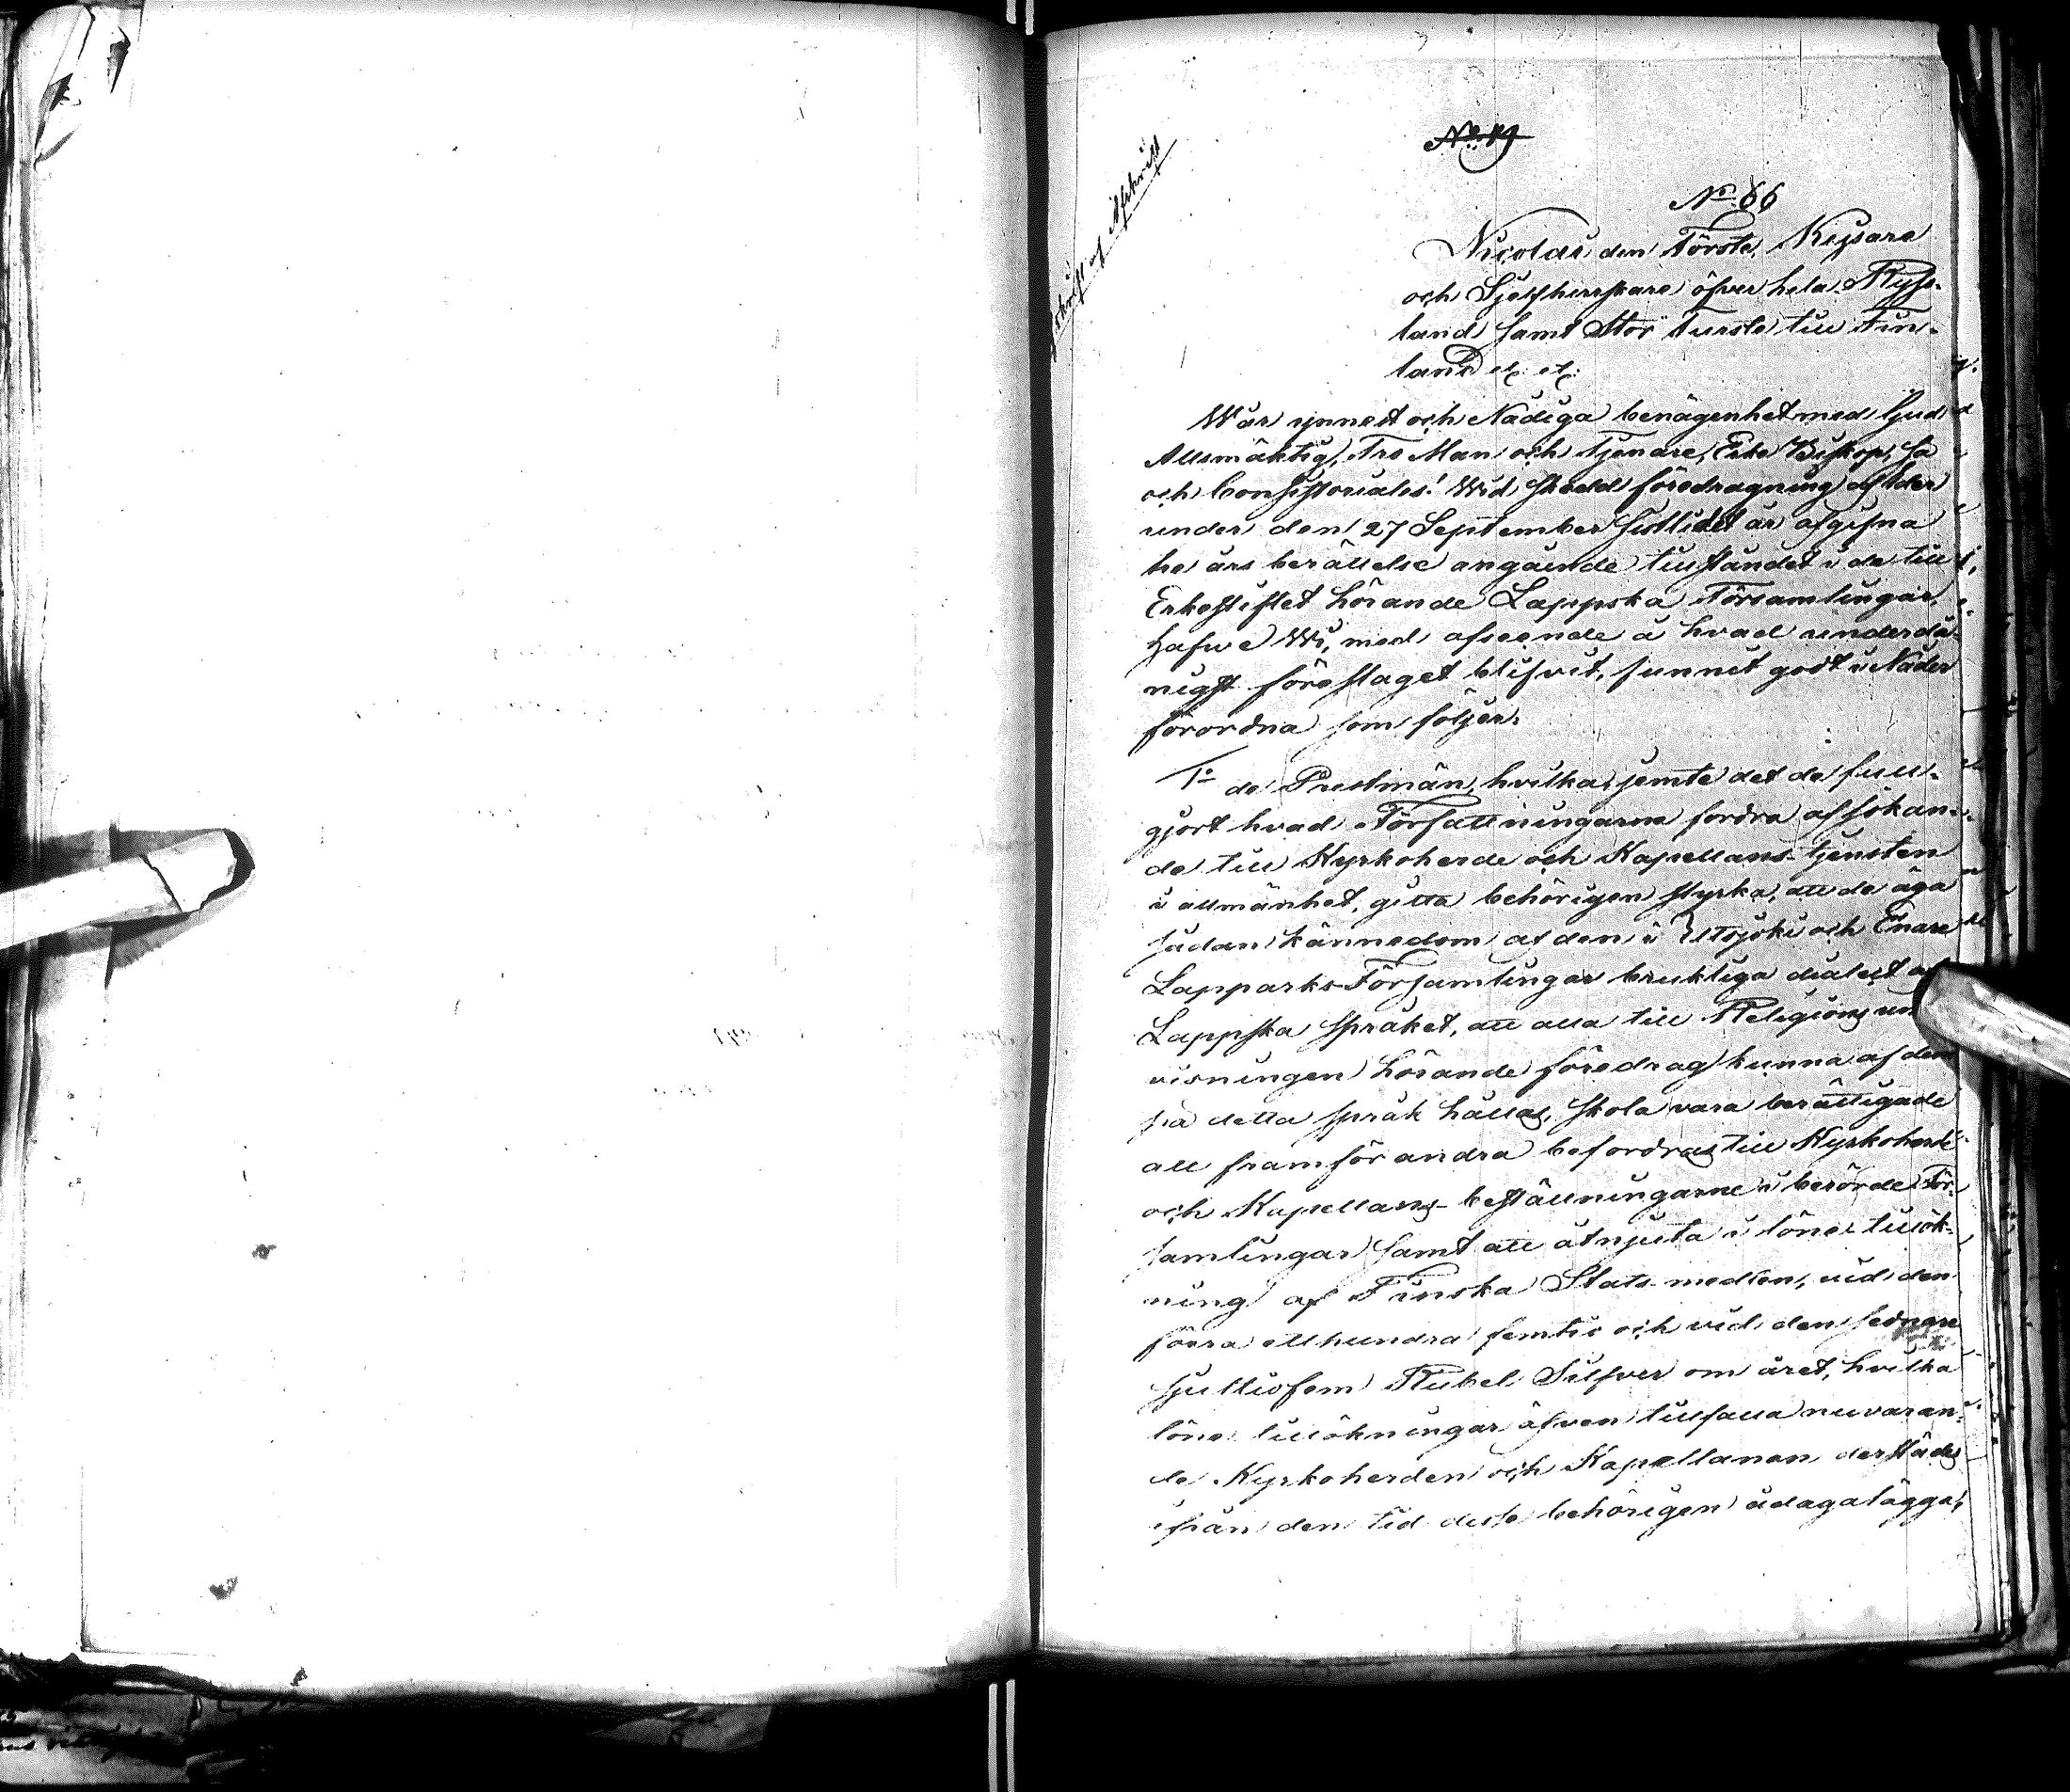 No 19
Afskrift af Afskrift
No 86
Nicolai den Förste, Kejsare
och Sjelfherrskare öfver hela Ryss-
land samt Stor Furste till Fin-
land etc. etc.
Wår ynnest och Nådiga benägenhet med Gud
Allsmäktig, Tro Man och Tjenare, Erke Biskop, så
och Consistoriales! Wid skedd föredragning af den
under den 27 September sistlidet år afgifna
tre års berättelse angående tillståndet i de till
Erkestiftet hörande Lappska Församlingar,
hafwe Wi, med afseende å hvad underdå-
nigst föreslaget blifvit, funnit godt i Nåder
förordna som följer.
1o de Prestmän, hvilka, jemte det de full-
gjort hvad Författningarna fordra af sökan-
de till Kyrkoherde och Kapellans tjensten
i allmänhet, gitta behörigen styrka, att de äga
sådan kännedom af den i Utsjoki och Enare
Lappmarks Församlingar brukliga dialect af
Lappska språket, att alla till Religions un
visningen hörande föredrag kunna af dem
på detta språk hållas, skola vara berättigade
att framför andra befordras till Kyrkoherde
och Kapellans-beställningarne i berörde För-
samlingar samt att åtnjuta i löne tillök-
ning af Finska Stats medlen, vid den
förra etthundra femtio och vid den sednare
sjuttiofem Rubel Silfver om året, hvilka
löne tillökningar äfven tillfalla nuvaran-
de Kyrkoherden och Kapellanen derstädes
ifrån den tid desse behörigen ådagalägga,